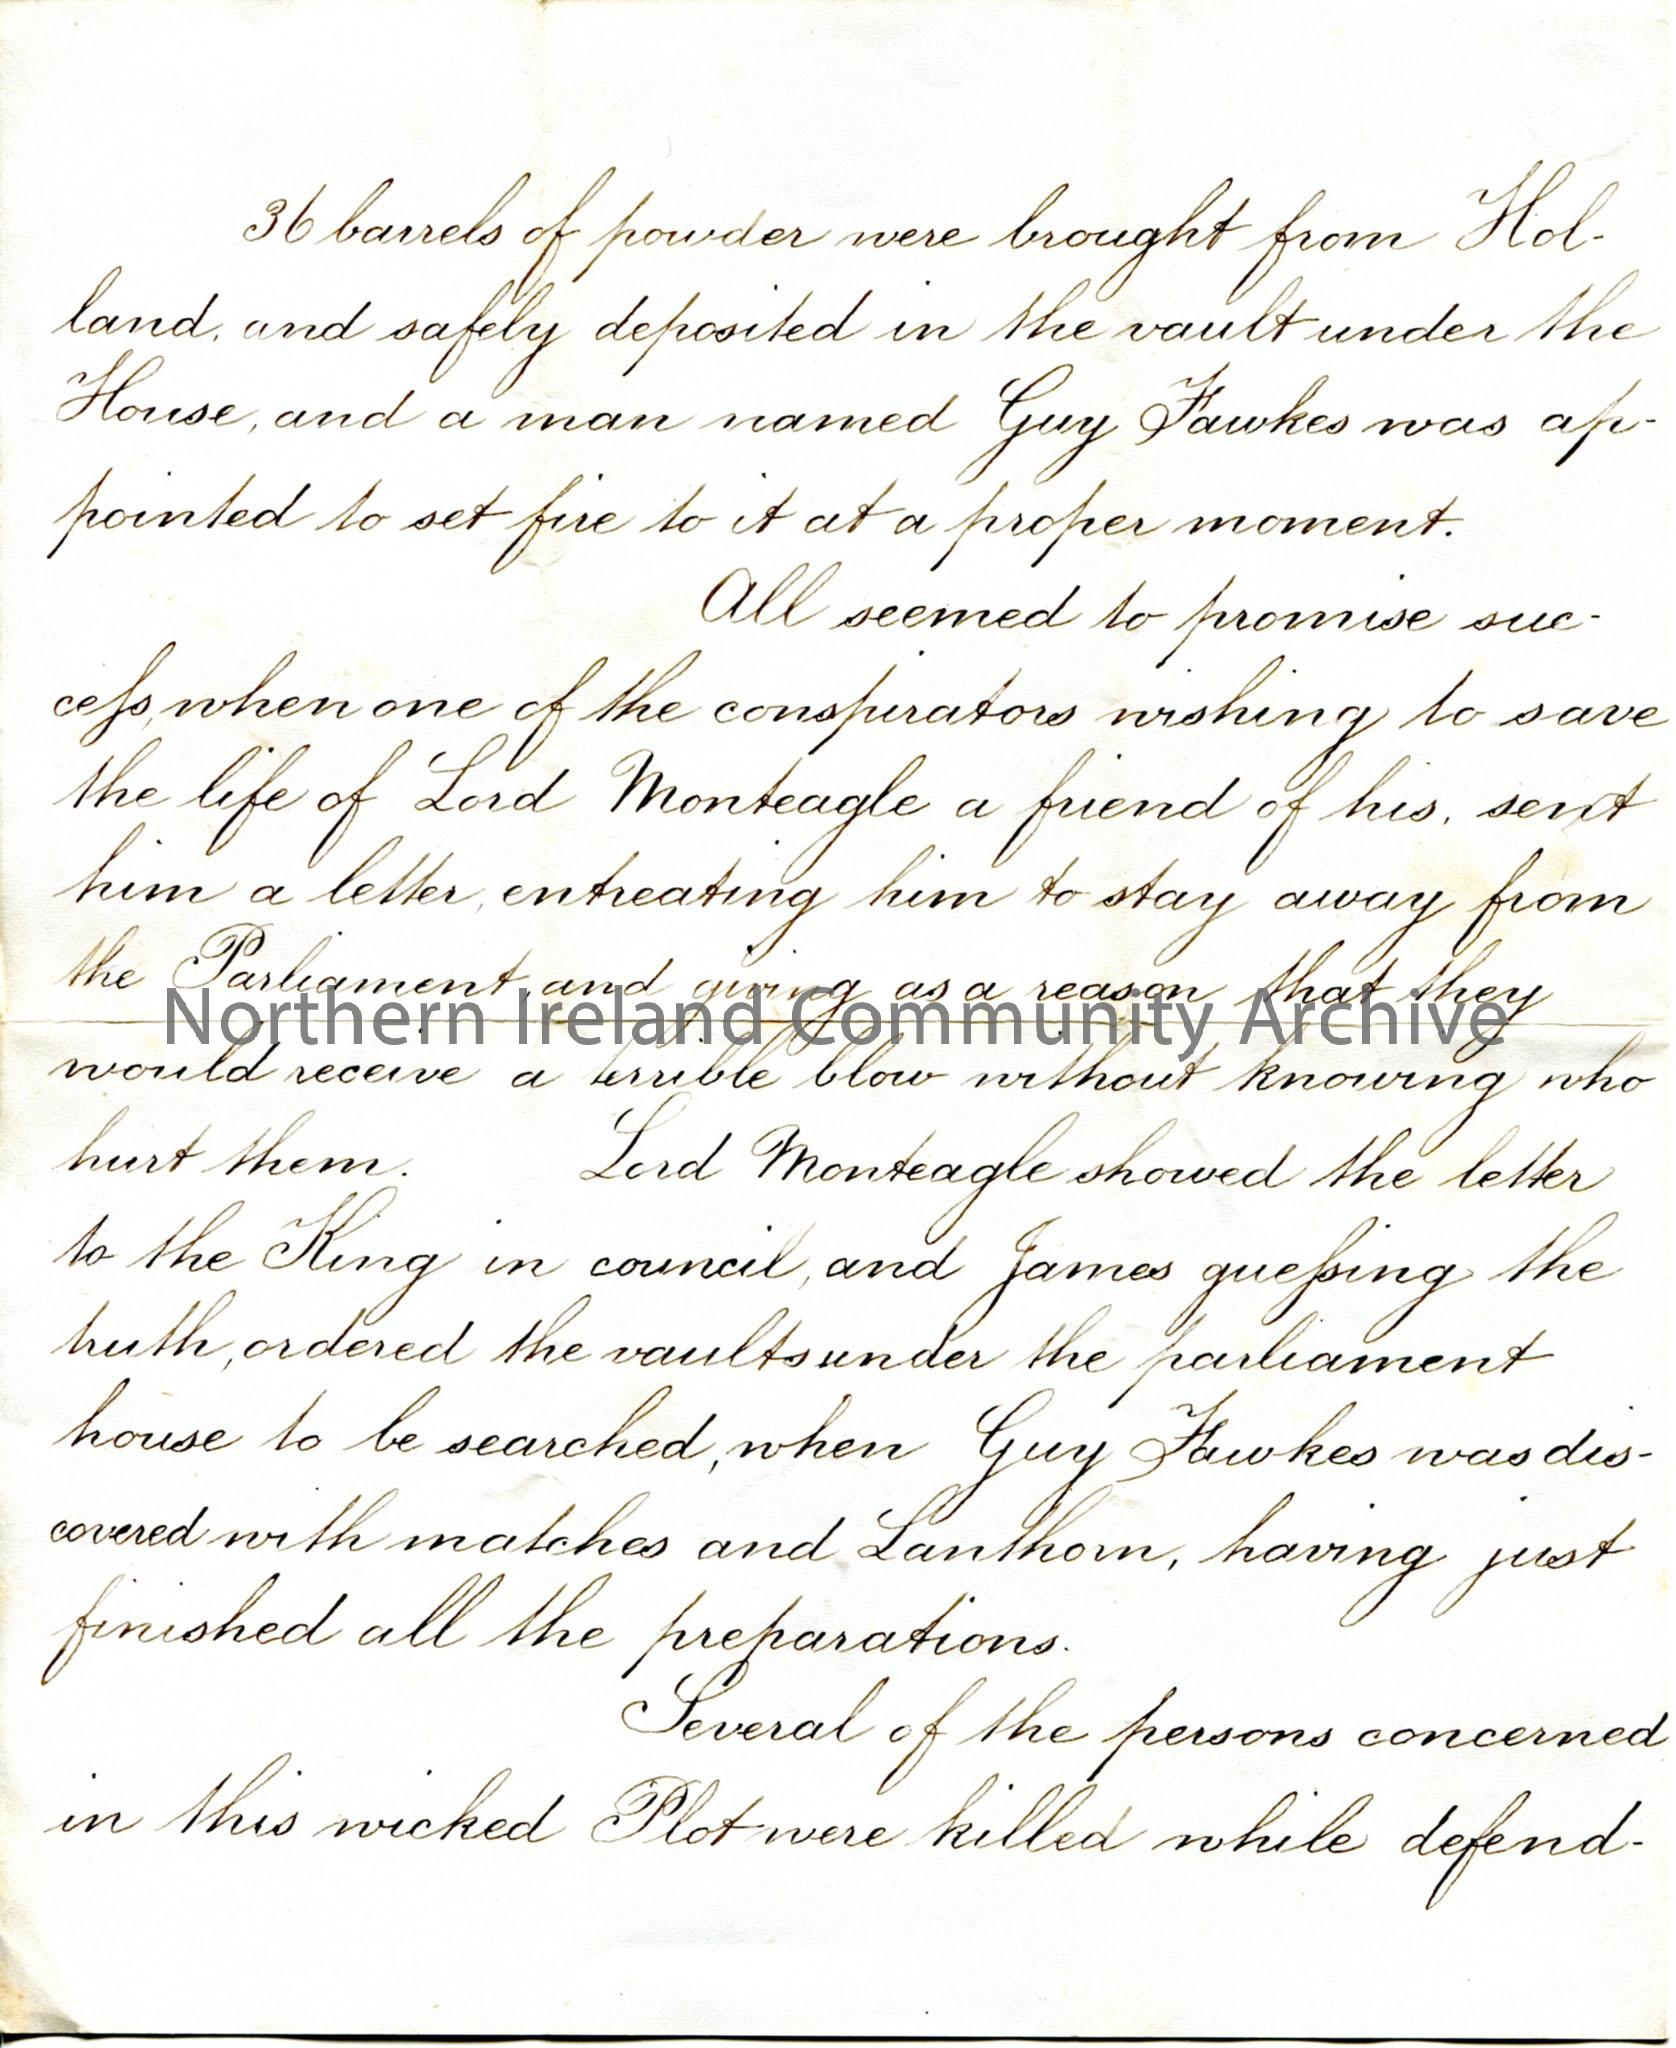 36 barrels of powder were brought from Hol-
land, and safely deposited in the vault under the
House, and a man named Guy Fawkes was ap-
pointed to set fire to it at a proper moment.
All seemed to promise suc-
ceſs, when one of the conspirators wishing to save
the life of Lord Monteagle a friend of his, sent
him a letter, entreating him to stay away from
the Parliament, and giving as a reason that they
Northern Ireland Community Archive
would receive a terrible blow without knowing who
hurt them. Lord Monteagle showed the letter
to the King in council, and James gueſsing the
truth, ordered the vaults under the parliament
house to be searched, when Guy Fawkes was dis-
covered with matches and Lanthorn, having just
finished all the preparations.
Several of the persons concerned
in this wicked Plot were killed while defend-